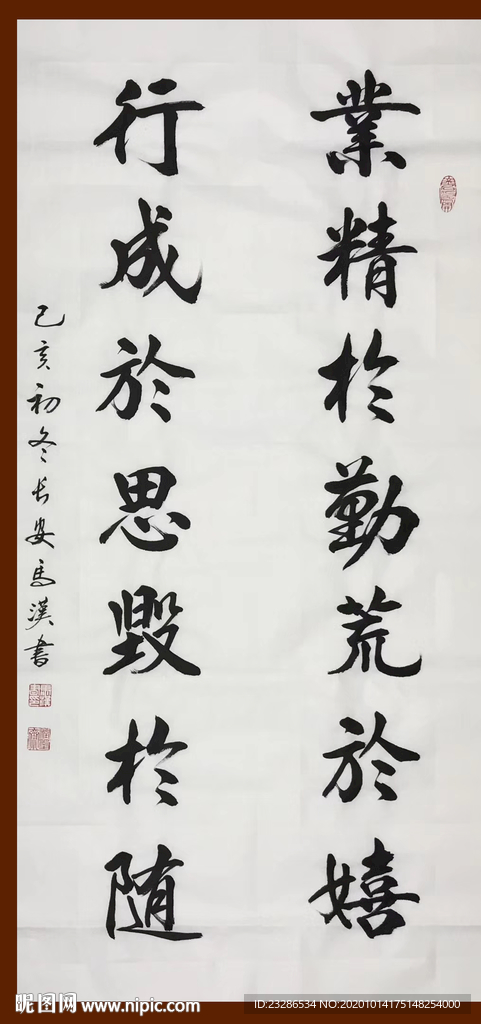 業精於勤荒於嬉
行成於思毀於随
己亥初冬长安馬漢書
昵图网 www.nipic.com
ID:23286534 NO:20201014175148254000